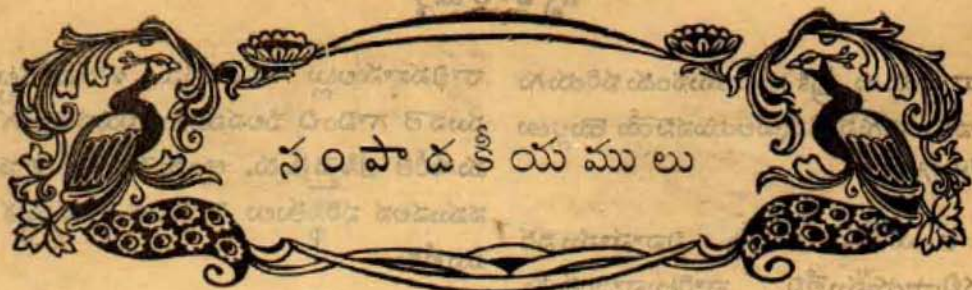 సంపాదకీయములు